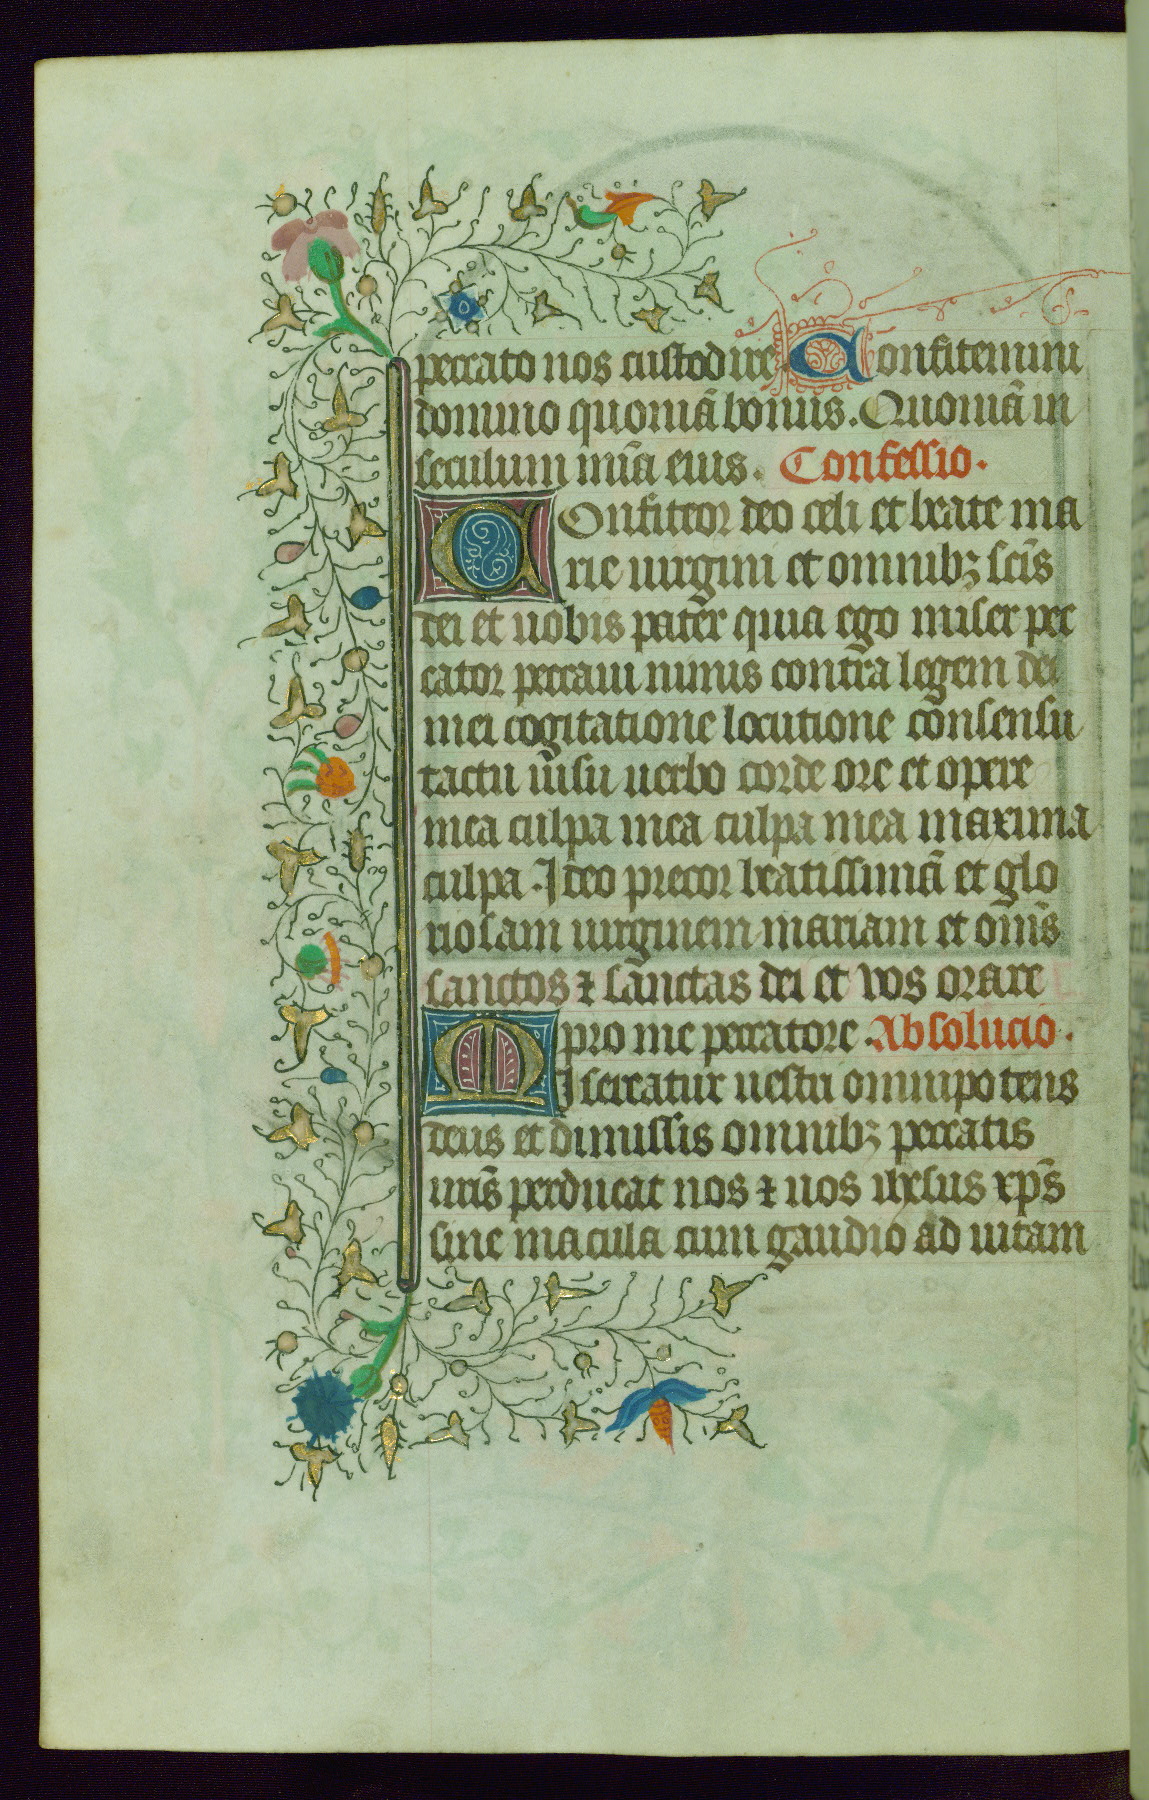 peccato nos custodire Confitemini
domino quoniā bonus. Quoniā in
seculum mīa eius. Confessio.
Confiteor deo celi et beate ma
rie uirgini et omnibꝫ scīs
dei et uobis pater quia ego miser pec
cator peccaui nimis contra legem dei
mei cogitatione locutione consensu
tactu uisu uerbo corde ore et opere
mea culpa mea culpa mea maxima
culpa. Ideo precor beatissimā et glo
riosam uirginem mariam et om̄s
sanctos ⁊ sanctas dei et vos orare
pro me peccatore. Absolucio.
Misereatur uestri omnipotens
deus et dimissis omnibꝫ peccatis
urīs perducat nos ⁊ uos ihesus xp̄s
sine macula cum gaudio ad uitam